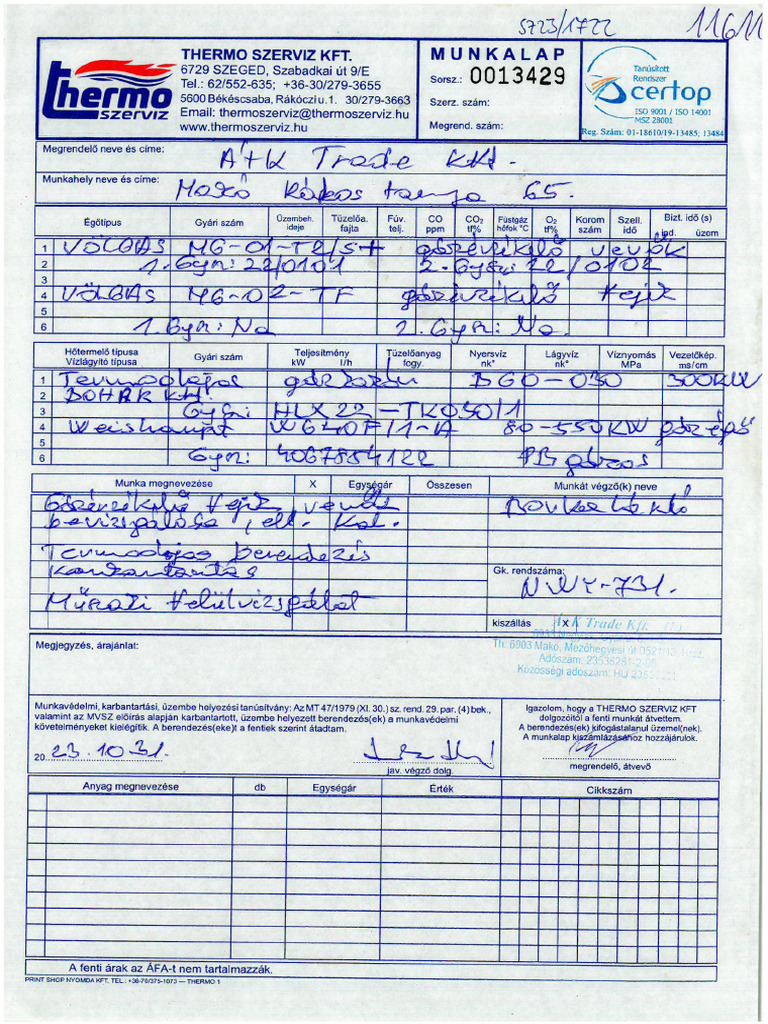 SZ23/1722 11611
thermo szerviz
THERMO SZERVIZ KFT.
6729 SZEGED, Szabadkai út 9/E
Tel.: 62/552-635; +36-30/279-3655
5600 Békéscsaba, Rákóczi u. 1. 30/279-3663
Email: thermoszerviz@thermoszerviz.hu
www.thermoszerviz.hu
MUNKALAP
Sorsz.: 0013429
Szerz. szám:
Megrend. szám:
Tanúsított
Rendszer
certop
ISO 9001 / ISO 14001
MSZ 28001
Reg. Szám: 01-18610/19-13485; 13484
Megrendelő neve és címe: A+K Trade Kft.
Munkahely neve és címe: Makó Rákos tanya 65.
Égőtípus Gyári szám Üzembeh. ideje Tüzelőa. fajta Fúv. telj. CO ppm CO2 tf% Füstgáz hőfok °C O2 tf% Korom szám Szell. idő Bizt. idő (s) ind. üzem
1 VÖLGÁS MG-01-TR/S+ gázérzékelő
2 1. Gysz: 22/0101 2. Gysz: 22/0102
3
4 VÖLGÁS MG-02-TF gázérzékelő fejek
5
6 1. Gysz: Na 2. Gysz: Na.
Hőtermelő típusa Vízlágyító típusa Gyári szám Teljesítmény kW l/h Tüzelőanyag fogy. Nyersvíz nk° Lágyvíz nk° Víznyomás MPa Vezetőkép. ms/cm
1 Termoolajos gázkazán BGO-030 300KW
2 BOHRK Kft.
3 Gysz: HLX22-TK030/1
4 Weishaupt WG40F/1-A 80-550KW gázégő
5
6 Gysz: 4067854122 PB gázos
Munka megnevezése X Egységár Összesen Munkát végző(k) neve
Gázérzékelő fejek,
bevizsgálása, ell. Kal.
Termoolajos berendezés
karbantartás
Műszaki felülvizsgálat
Gk. rendszáma: NWY-731.
kiszállás X
A+K Trade Kft.
Th: 6903 Makó, Mezőhegyesi út 0521/13. hrsz.
Adószám: 23536281-2-06
Közösségi adószám: HU 23536281
Megjegyzés, árajánlat:
Munkavédelmi, karbantartási, üzembe helyezési tanúsítvány: Az MT 47/1979 (XI. 30.) sz. rend. 29. par. (4) bek.,
valamint az MVSZ előírás alapján karbantartott, üzembe helyezett berendezés(ek) a munkavédelmi
követelményeket kielégítik. A berendezés(eke)t a fentiek szerint átadtam.
20 23.10.31.
jav. végző dolg.
Igazolom, hogy a THERMO SZERVIZ KFT
dolgozóitól a fenti munkát átvettem.
A berendezés(ek) kifogástalanul üzemel(nek).
A munkalap kiszámlázásához hozzájárulok.
megrendelő, átvevő
Anyag megnevezése db Egységár Érték Cikkszám
A fenti árak az ÁFA-t nem tartalmazzák.
PRINT SHOP NYOMDA KFT. TEL.: +36-70/375-1073 — THERMO 1